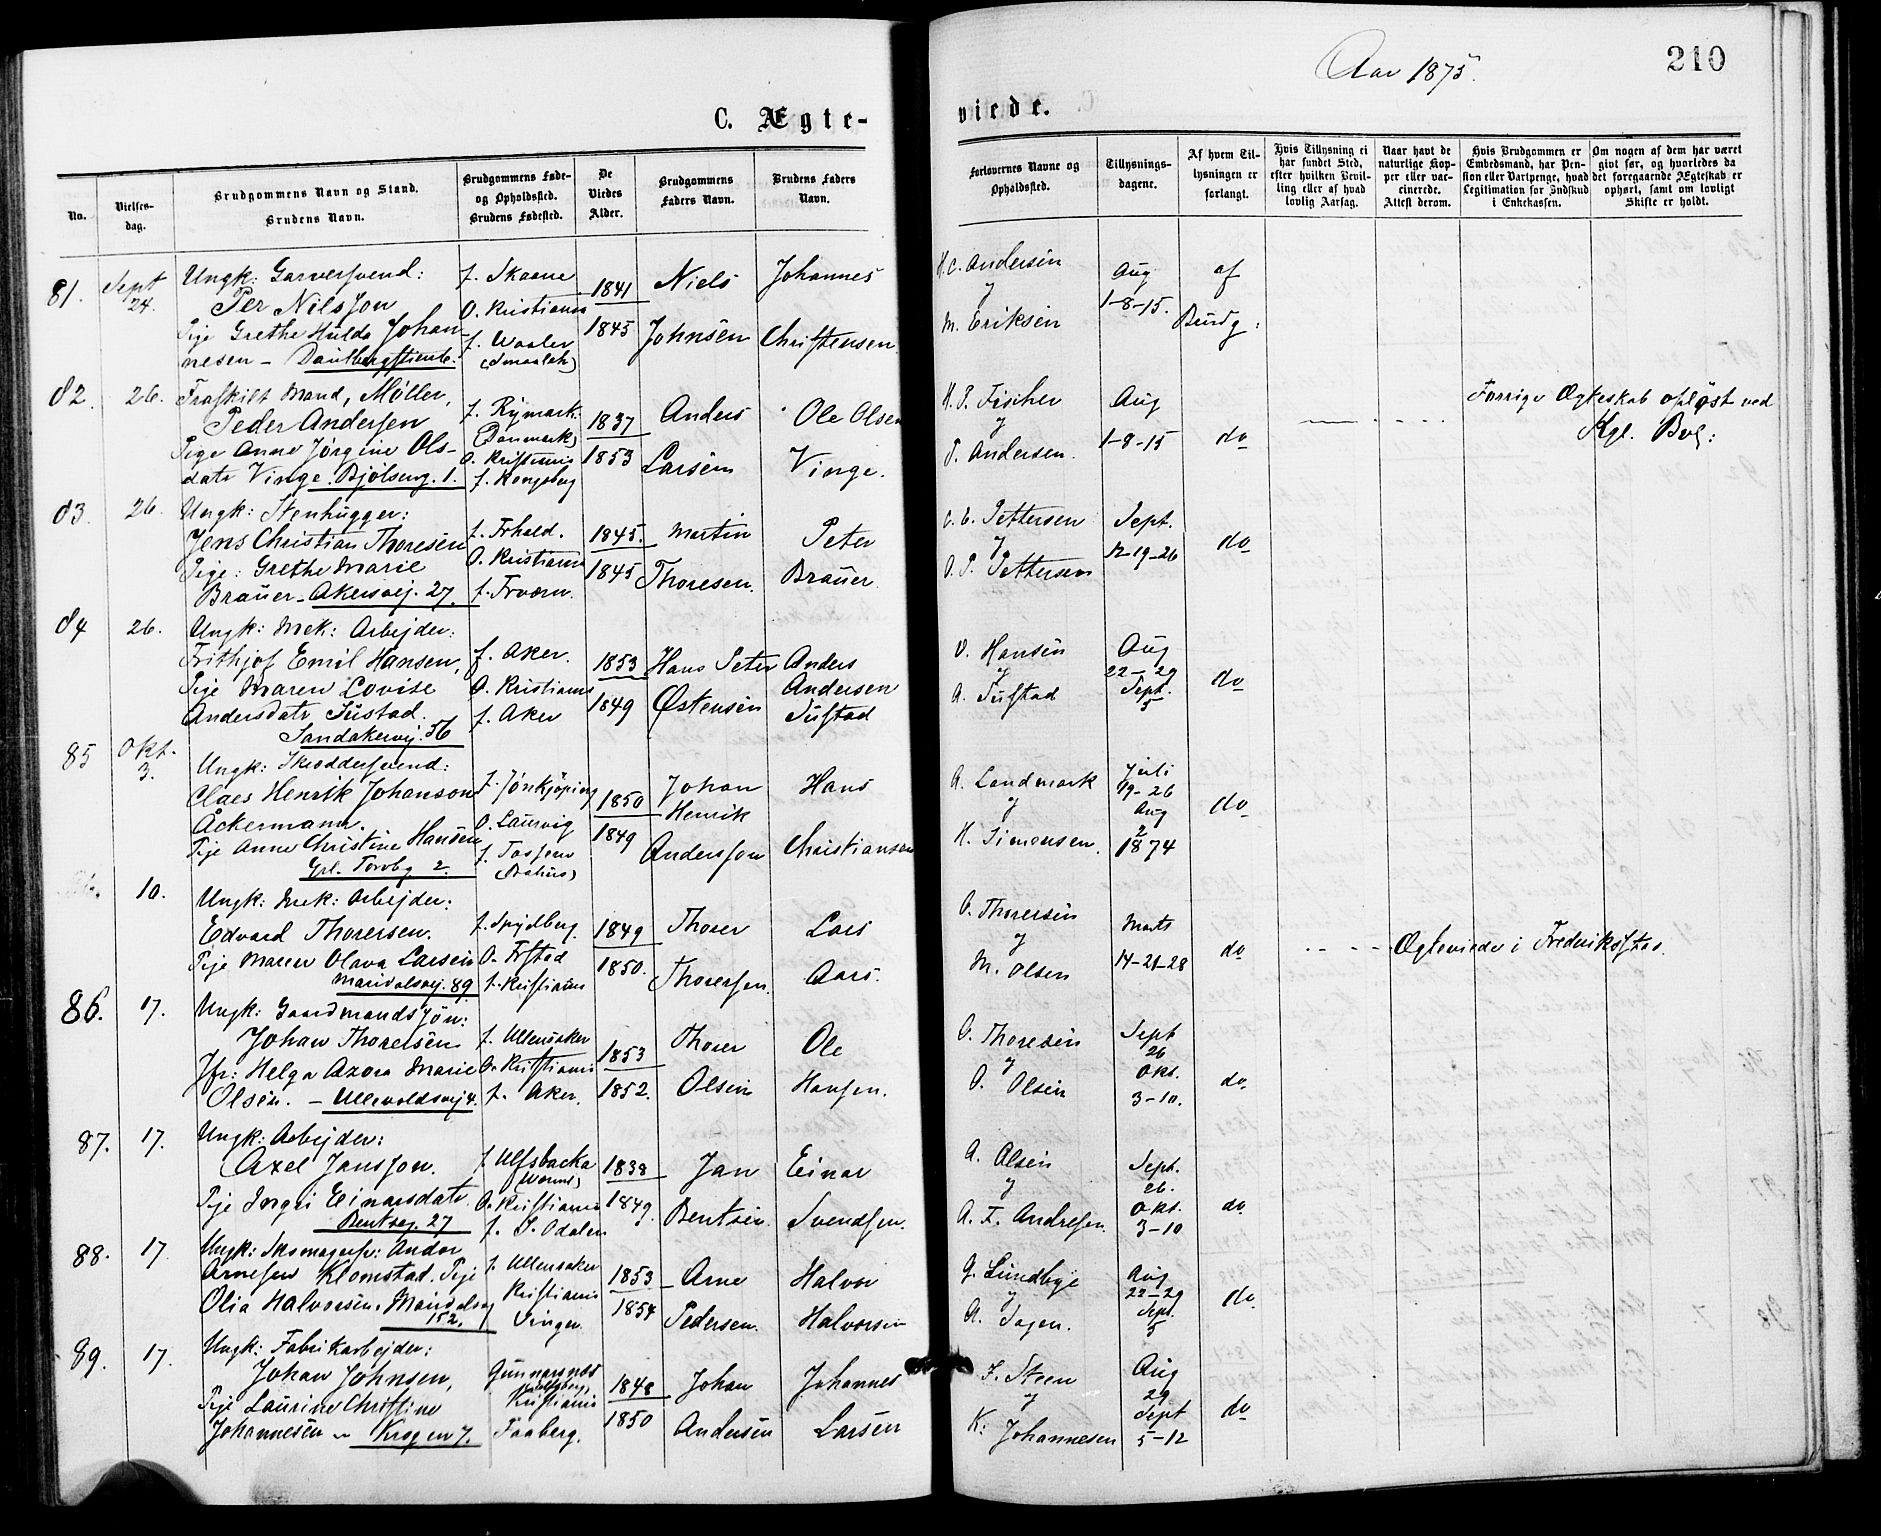 Aar 1875.
210
C. Ægte-
viede.
No.
Vielses-
dag.
Brudgommens Navn og Stand.
Brudens Navn.
Brudgommens Føde-
og Opholdssted.
Brudens Fødested.
De
Viedes
Alder.
Brudgommens
Faders Navn.
Brudens Faders
Navn.
Forlovernes Navne og
Opholdssted.
Tillysnings-
dagene.
Af hvem Til-
lysningen er
forlangt.
Hvis Tillysning ei
har fundet Sted,
efter hvilken Bevil-
ling eller af hvad
lovlig Aarsag.
Naar havt de
naturlige Kop-
per eller vac-
cinerede.
Attest derom.
Hvis Brudgommen er
Embedsmand, har Pen-
sion eller Vartpenge, hvad
Legitimation for Indskud
i Enkekassen.
Om nogen af dem har været
givt før, og hvorledes da
det foregaaende Ægteskab er
ophørt, samt om lovligt
Skifte er holdt.
81. Sept 24.
Ungk: Garversvend:
Per Nilsson
Pige Grethe Hulda Johan-
nesen -
f. Skaane
O. Kristiania
f. Vaaler
(Smaalen)
1841
1845
Niels
Johnsen
Johannes
Christensen
H.C. Andersen
y
M. Eriksen
Aug
1-8-15.
af
Brudg:
82. 26.
Fraskilt Mand, Møller,
Peder Andersen
Pige Anne Jørgine Ols-
datr Vinge. Bjølseng. 1.
f. Rymark.
(Danmark)
O. Kristiania
f. Kongsberg
1837
1853
Anders
Larsen
Ole Olsen
Vinge.
H. P. Fischer
y
P. Andersen.
Aug
1-8-15
do
Forrige Ægteskab opløst ved
Kgl. Bev:
83. 26.
Ungk: Stenhugger:
Jens Christian Thoresen
Pige: Grethe Marie
Braüer - Akersvej. 27.
f. Frhald.
O. Kristiania
1845.
1845
Martin
Thoresen.
Peter
Braüer.
Pettersen
y
O. P. Pettersen
Sept.
12-19-26
do
84 26.
Ungk: Mek: Arbejder:
Frithjof Emil Hansen,
Pige Maren Lovise
Andersdatr Tüstad.
Sandakervej. 56
f. Aker.
O. Kristiania
f. Aker
1853
1849
Hans Peter
Østensen
Anders
Andersen
Tüstad
O. Hansen
y
A. Tüstad
Aug
22-29
Sept.
5
do
85 Okt. 3.
Ungk: Skræddersvend:
Claes Henrik Johanson
Åckermann.
Pige Anne Christine Hansen
Grl. Torvbg 2.
f. Jönkjöping
O. Laurvig
1850
1849
Johan
Henrik
Andersson
Hans
Christiansen
A. Landmark
y
H. Simonsen.
Juli
19-26
Aug
2
1874
do
10.
Ungk: Mek: Arbejder:
Edvard Thoresen.
Pige Maren Olava Larsen
Maridalsvej. 89
f. Spydberg.
O. Frstad
f. Kristiania
1849
1850.
Thorer
Thorersen.
Lars
Aars.
O. Thorersen
y
M. Olsen
Marts
14-21-28
do
Ægteviede i Fredrikstad.
86. 17.
Ungk: Gaardmandssøn:
Johan Thorersen
Jfr: Helga Azora Marie
Olsen. - Ullevoldsvej 4.
f. Ullensaker
O. Kristiania
f. Aker.
1853
1852.
Thorer
Olsen
Ole
Hansen.
O. Thoresen
y
O. Olsen
Sept
26
Okt.
3-10.
do
87. 17.
Ungk: Arbejder:
Axel Jansson.
Pige Ingri Einarsdatr.
Bentseg. 27
f. Ulfsbacka
O. Kristiania
f. S. Odalen
1838
1849.
Jan
Bentsen.
Einar
Svendsen.
A. Olsen
y
A. F. Andresen
Sept.
26.
Okt.
3-10
do
88. 17.
Ungk: Skomagersv: Andor
Arnesen Klomstad. Pige
Olia Halvorsen. Maridalsvej
152.
f. Ullensaker
Kristiania
Vinger
1853
1854
Arne
Pedersen.
Halvor
Halvorsen
G. Lundbye
y
Aug
22-29
Sept.
5
do
89. 17.
Ungk: Fabrikarbejder:
Johan Johnsen,
Pige Laurine Christine
Johannesen - Krogen 7.
Gunnarsnæs
Kristiania
Faaberg.
1848
1850
Johan
Andersen
Johannes
Larsen
J. Steen
y
K: Johannesen
Aug
29
Sept
5-12
do